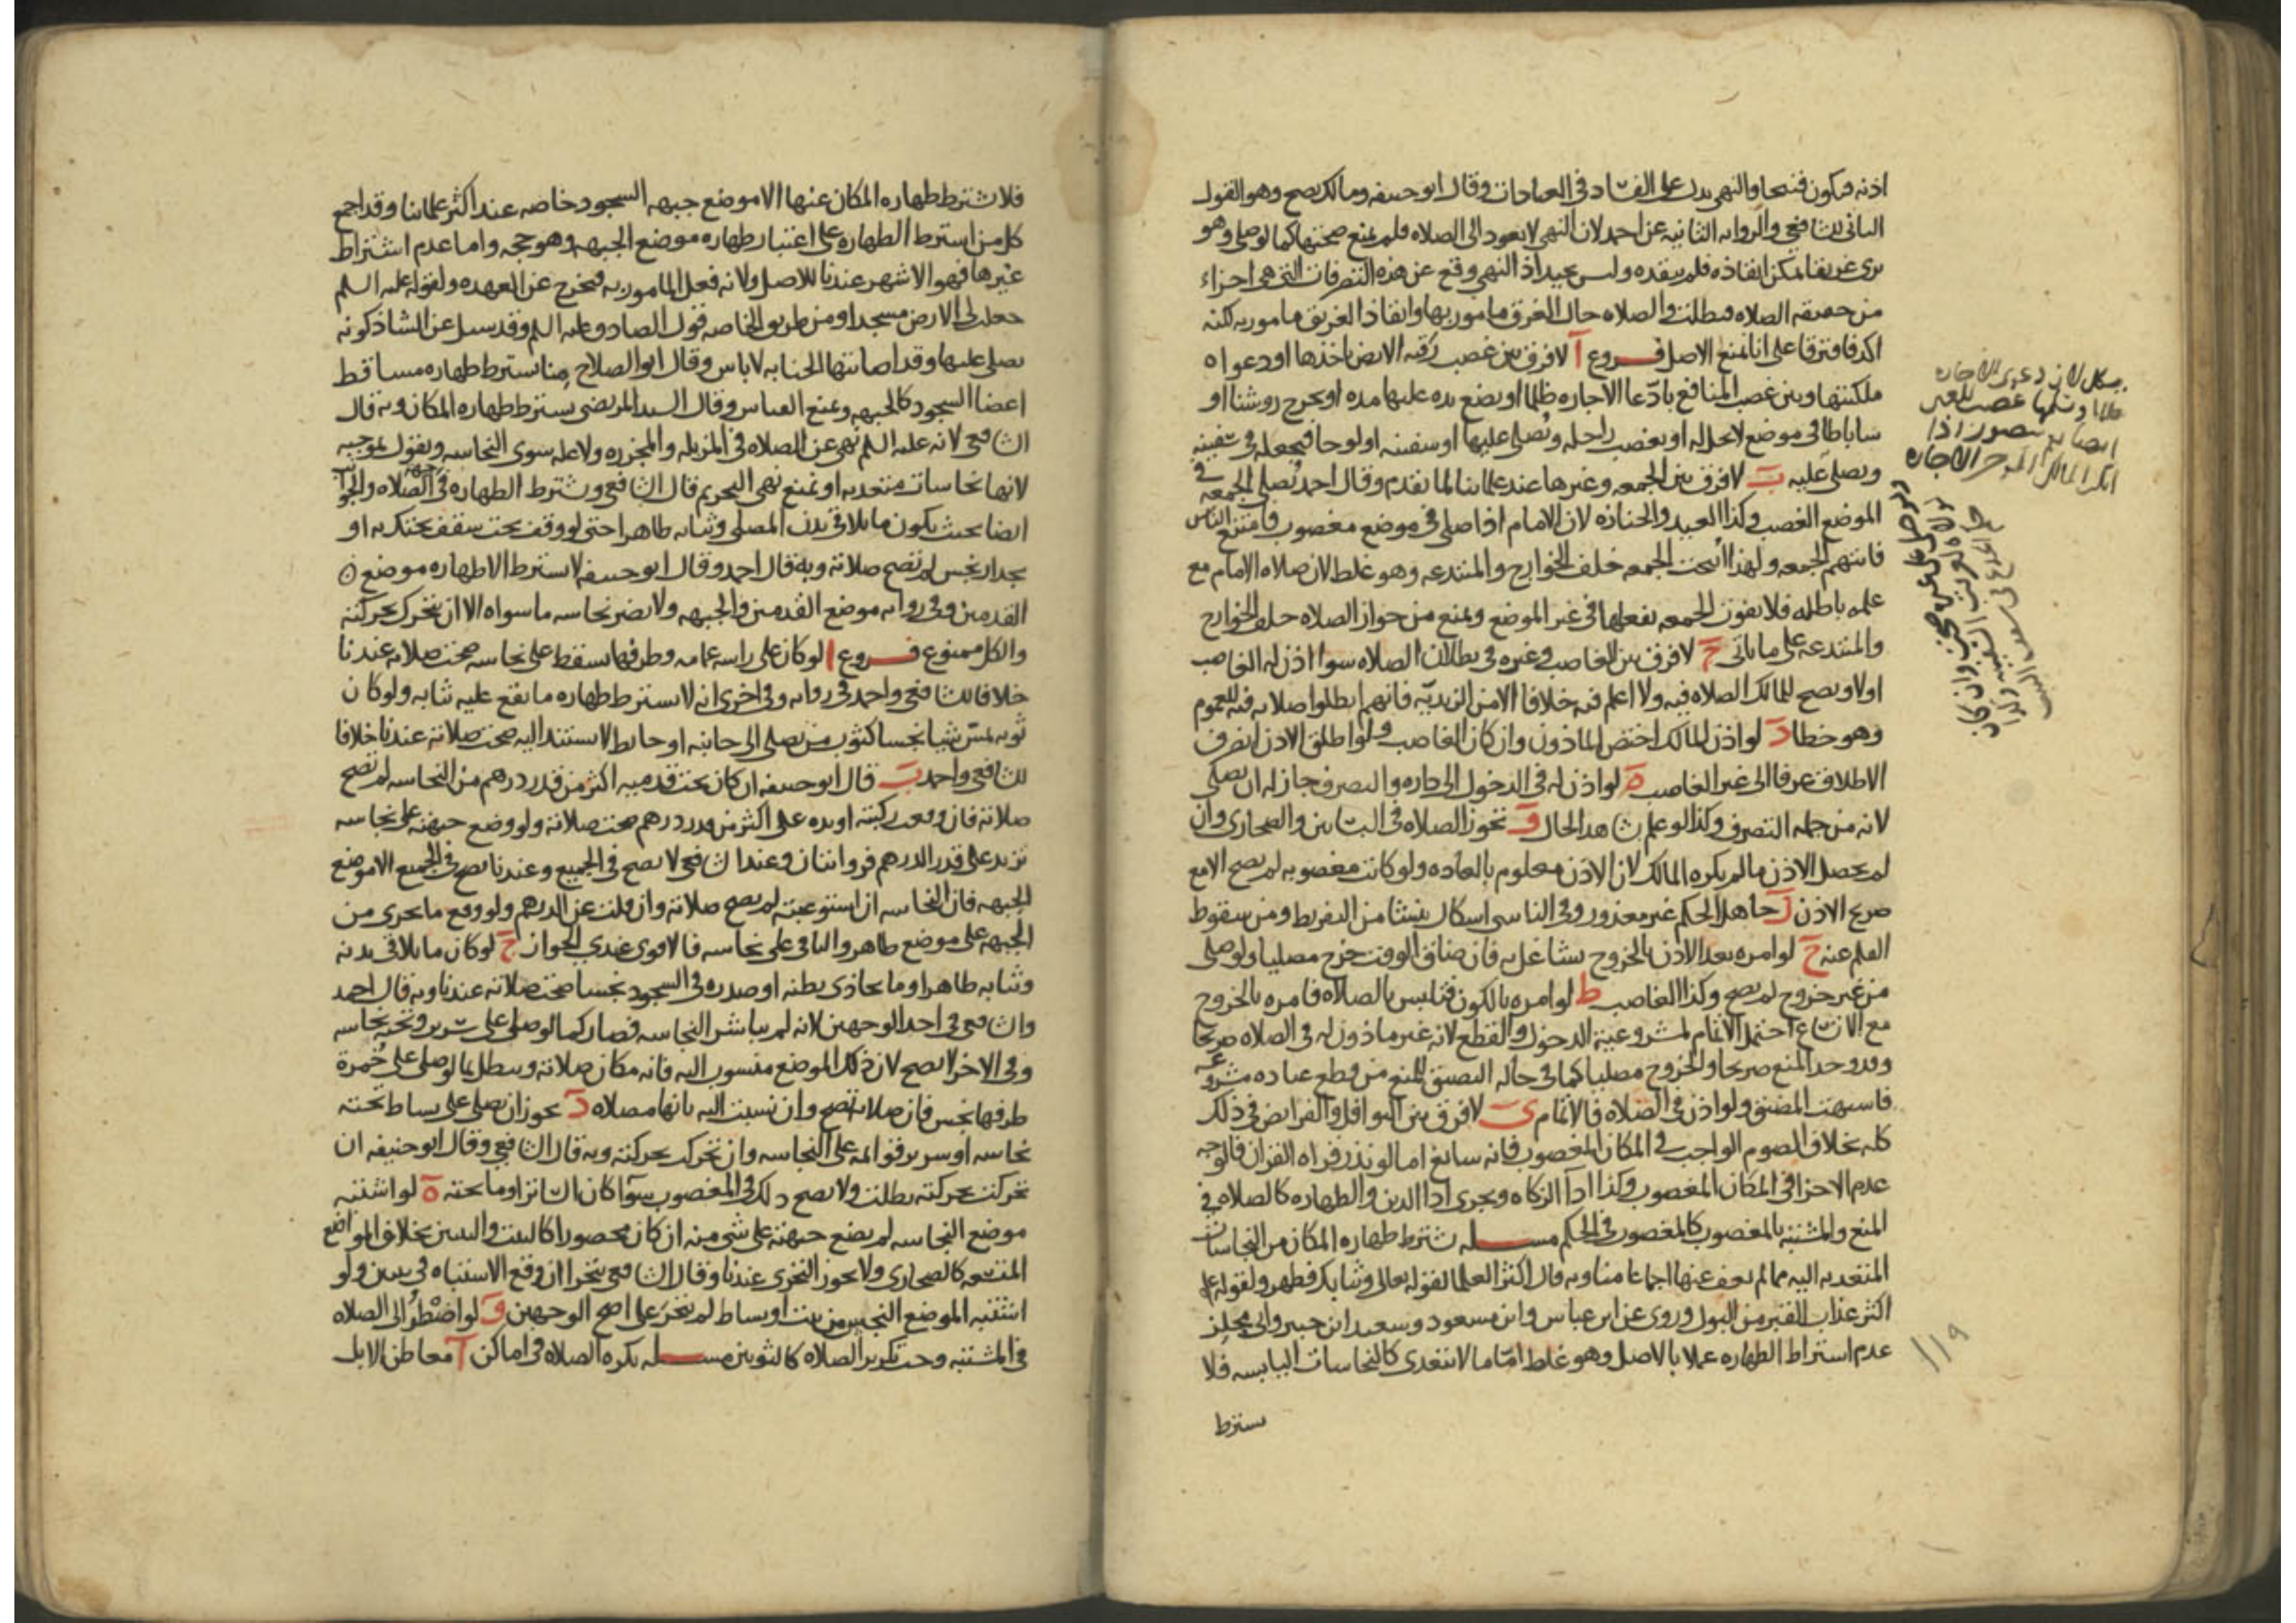 اذنه فيكون قبيحا والنهي يدل على الفساد في العبادات وقال ابو حنيفه ومالك يصح وهو القول
الثاني للشافعي والروايه الثانيه عن احمد لان النهي لا يعود الى الصلاه فلم يمنع صحتها كما لو صلى وهو
يرى غريقا يمكن انقاذه فلم ينقذه وليس بجيد اذ النهي وقع عن هذه التصرفات التي هي اجزاء
من حقيقه الصلاه فبطلت والصلاه حال الغرق مامور بها وانقاذ الغريق مامور به لكنه
اكد فافترقا على انا نمنع الاصل فروع آ لا فرق بين غصب رقبه الارض باخذها او دعواه
ملكيتها وبين غصب المنافع بادعا الاجاره ظلما او يضع يده عليها مده او يخرج روشنا او
ساباطا في موضع لا يحل له او يغصب راحله ويصلي عليها او سفينه او لوحا فيجعله في سفينه
ويصلي عليه ب لا فرق بين الجمعه وغيرها عند علماينا لما تقدم وقال احمد يصلي الجمعه في
الموضع الغصب وكذا العيد والجنازه لان الامام اذا صلى في موضع مغصوب فامتنع الناس
فاتتهم الجمعه ولهذا ابيحت الجمعه خلف الخوارج والمبتدعه وهو غلط لان صلاه الامام مع
علمه باطله فلا يفوت الجمعه بفعلها في غير الموضع ونمنع من جواز الصلاه خلف الخوارج
والمبتدعه على ما ياتي ج لا فرق بين الغاصب وغيره في بطلان الصلاه سوا اذن له الغاصب
او لا ويصح للمالك الصلاه فيه ولا اعلم فيه خلافا الا من الزيديه فانهم ابطلوا صلاته فيه للعموم
وهو خطا د لو اذن المالك اختص الماذون وان كان الغاصب ولو اطلق الاذن انصرف
الاطلاق عرفا الى غير الغاصب ه لو اذن له في الدخول الى داره والتصرف جاز له ان يصلي
لانه من جمله التصرف وكذا لو علم شاهد الحال و تجوز الصلاه في البساتين والصحاري وان
لم يحصل الاذن ما لم يكره المالك لان الاذن معلوم بالعاده ولو كانت مغصوبه لم يصح الا مع
صريح الاذن ز جاهل الحكم غير معذور وفي الناسي اشكال ينشا من التفريط ومن سقوط
القلم عنه ح لو امره بعد الاذن بالخروج تشاغل به فان ضاق الوقت خرج مصليا ولو صلى
من غير خروج لم يصح وكذا الغاصب ط لو امره بالكون فتلبس بالصلاه فامره بالخروج
مع الاتساع احتمل الاتمام لمشروعيه الدخول والقطع لانه غير ماذون له في الصلاه صريحا
وقد وجد المنع صريحا والخروج مصليا كما في حاله التضيق للمنع من قطع عباده مشروعه
فاشبهت المضيق ولو اذن في الصلاه فالاتمام ي لا فرق بين النوافل والفرايض في ذلك
كله بخلاف الصوم الواجب في المكان المغصوب فانه سائغ اما لو نذر قراه القران فالوجه
عدم الاجزا في المكان المغصوب وكذا اداآ الزكاه ويجزي ادا الدين والطهاره كالصلاه في
المنع والمشتبه بالمغصوب كالمغصوب في الحكم مسله تشترط طهاره المكان من النجاسات
المتعديه اليه مما لم يعف عنها اجماعا منا وبه قال اكثر العلما لقوله تعالى وثيابك فطهر ولقوله ع
اكثر عذاب القبر من البول وروي عن ابن عباس وابن مسعود وسعيد ابن جبير وابي مجلز
عدم اشتراط الطهاره عملا بالاصل وهو غلط اما ما لا تتعدى كالنجاسات اليابسه فلا
يشترط
يشكل لان دعوى الاجاره
ايضا بم يتصور اذا
انكر المالك الاجاره
١١٩
فلا تشترط طهاره المكان عنها الا موضع جبهه السجود خاصه عند اكثر علماينا وقد اجمع
كل من اشترط الطهاره على اعتبار طهاره موضع الجبهه وهو حجه واما عدم اشتراط
غيرها فهو الاشهر عندنا للاصل ولانه فعل المامور به فيخرج عن العهده ولقوله عليه السلم
جعلت لي الارض مسجدا ومن طريق الخاصه قول الصادق عليه السلم وقد سيل عن الشاذكونه
يصلى عليها وقد اصابتها الجنابه لا باس وقال ابو الصلاح منا تشترط طهاره مساقط
اعضا السجود كالجبهه ونمنع القياس وقال السيد المرتضى يشترط طهاره المكان وبه قال
الشافعي لانه عليه السلم نهى عن الصلاه في المزبله والمجزره ولا عله سوى النجاسه ونقول بموجبه
لانها نجاسات متعديه او نمنع نهي التحريم قال الشافعي وتشترط الطهاره في جهه الصلاه والجوانب
ايضا بحيث يكون ما يلاقي بدن المصلي وثيابه طاهرا حتى لو وقف تحت سقف يحتك به او
بجدار نجس لم تصح صلاته وبه قال احمد وقال ابو حنيفه لا تشترط الا طهاره موضع
القدمين وفي روايه موضع القدمين والجبهه ولا يضر نجاسه ما سواه الا ان يتحرك بحركته
والكل ممنوع فروع ا لو كان على راسه عمامه وطرفها يسقط على نجاسه صحت صلاته عندنا
خلافا للشافعي واحمد في روايه وفي اخرى انه لا يشترط طهاره ما يقع عليه ثيابه ولو كان
ثوبه يمس شيا نجسا كثوب من يصلي الى جانبه او حايط لا يستند اليه صحت صلاته عندنا خلافا
للشافعي واحمد ب قال ابو حنيفه ان كان تحت قدميه اكثر من قدر درهم من النجاسه لم تصح
صلاته فان وقعت ركبته او يده على اكثر من قدر درهم صحت صلاته ولو وضع جبهته على نجاسه
تزيد على قدر الدرهم فروايتان وعند الشافعي لا تصح في الجميع وعندنا تصح في الجميع الا موضع
الجبهه فان النجاسه ان استوعبته لم تصح صلاته وان قلت عن الدرهم ولو وقع ما يجزي من
الجبهه على موضع طاهر والباقي على نجاسه فالاقوى عندي الجواز ج لو كان ما يلاقي بدنه
وثيابه طاهرا وما يحاذي بطنه او صدره في السجود نجسا صحت صلاته عندنا وبه قال احمد
والشافعي في احد الوجهين لانه لم يباشر النجاسه فصار كما لو صلى على سرير وتحته نجاسه
وفي الاخر لا تصح لان ذلك الموضع منسوب اليه فانه مكان صلاته ويبطل بما لو صلى على خمرة
طرفها نجس فان صلاته تصح وان نسبت اليه بانها مصلاه د يجوز ان يصلي على بساط تحته
نجاسه او سرير قوائمه على النجاسه وان تحرك بحركته وبه قال الشافعي وقال ابو حنيفه ان
تحركت بحركته بطلت ولا يصح ذلك في المغصوب سوآ كان الساتر او ما تحته ه لو اشتبه
موضع النجاسه لم يضع جبهته على شي منه ان كان محصورا كالبيت والبيتين بخلاف المواضع
المتسعه كالصحاري ولا يجوز التحري عندنا وقال الشافعي يتحرا ان وقع الاشتباه في بيتين ولو
اشتبه الموضع النجس من بيت او بساط لم يتحر على اصح الوجهين و لو اضطر الى الصلاه
في المشتبه وجب تكرير الصلاه كالثوبين مسله تكره الصلاه في اماكن آ معاطن الابل